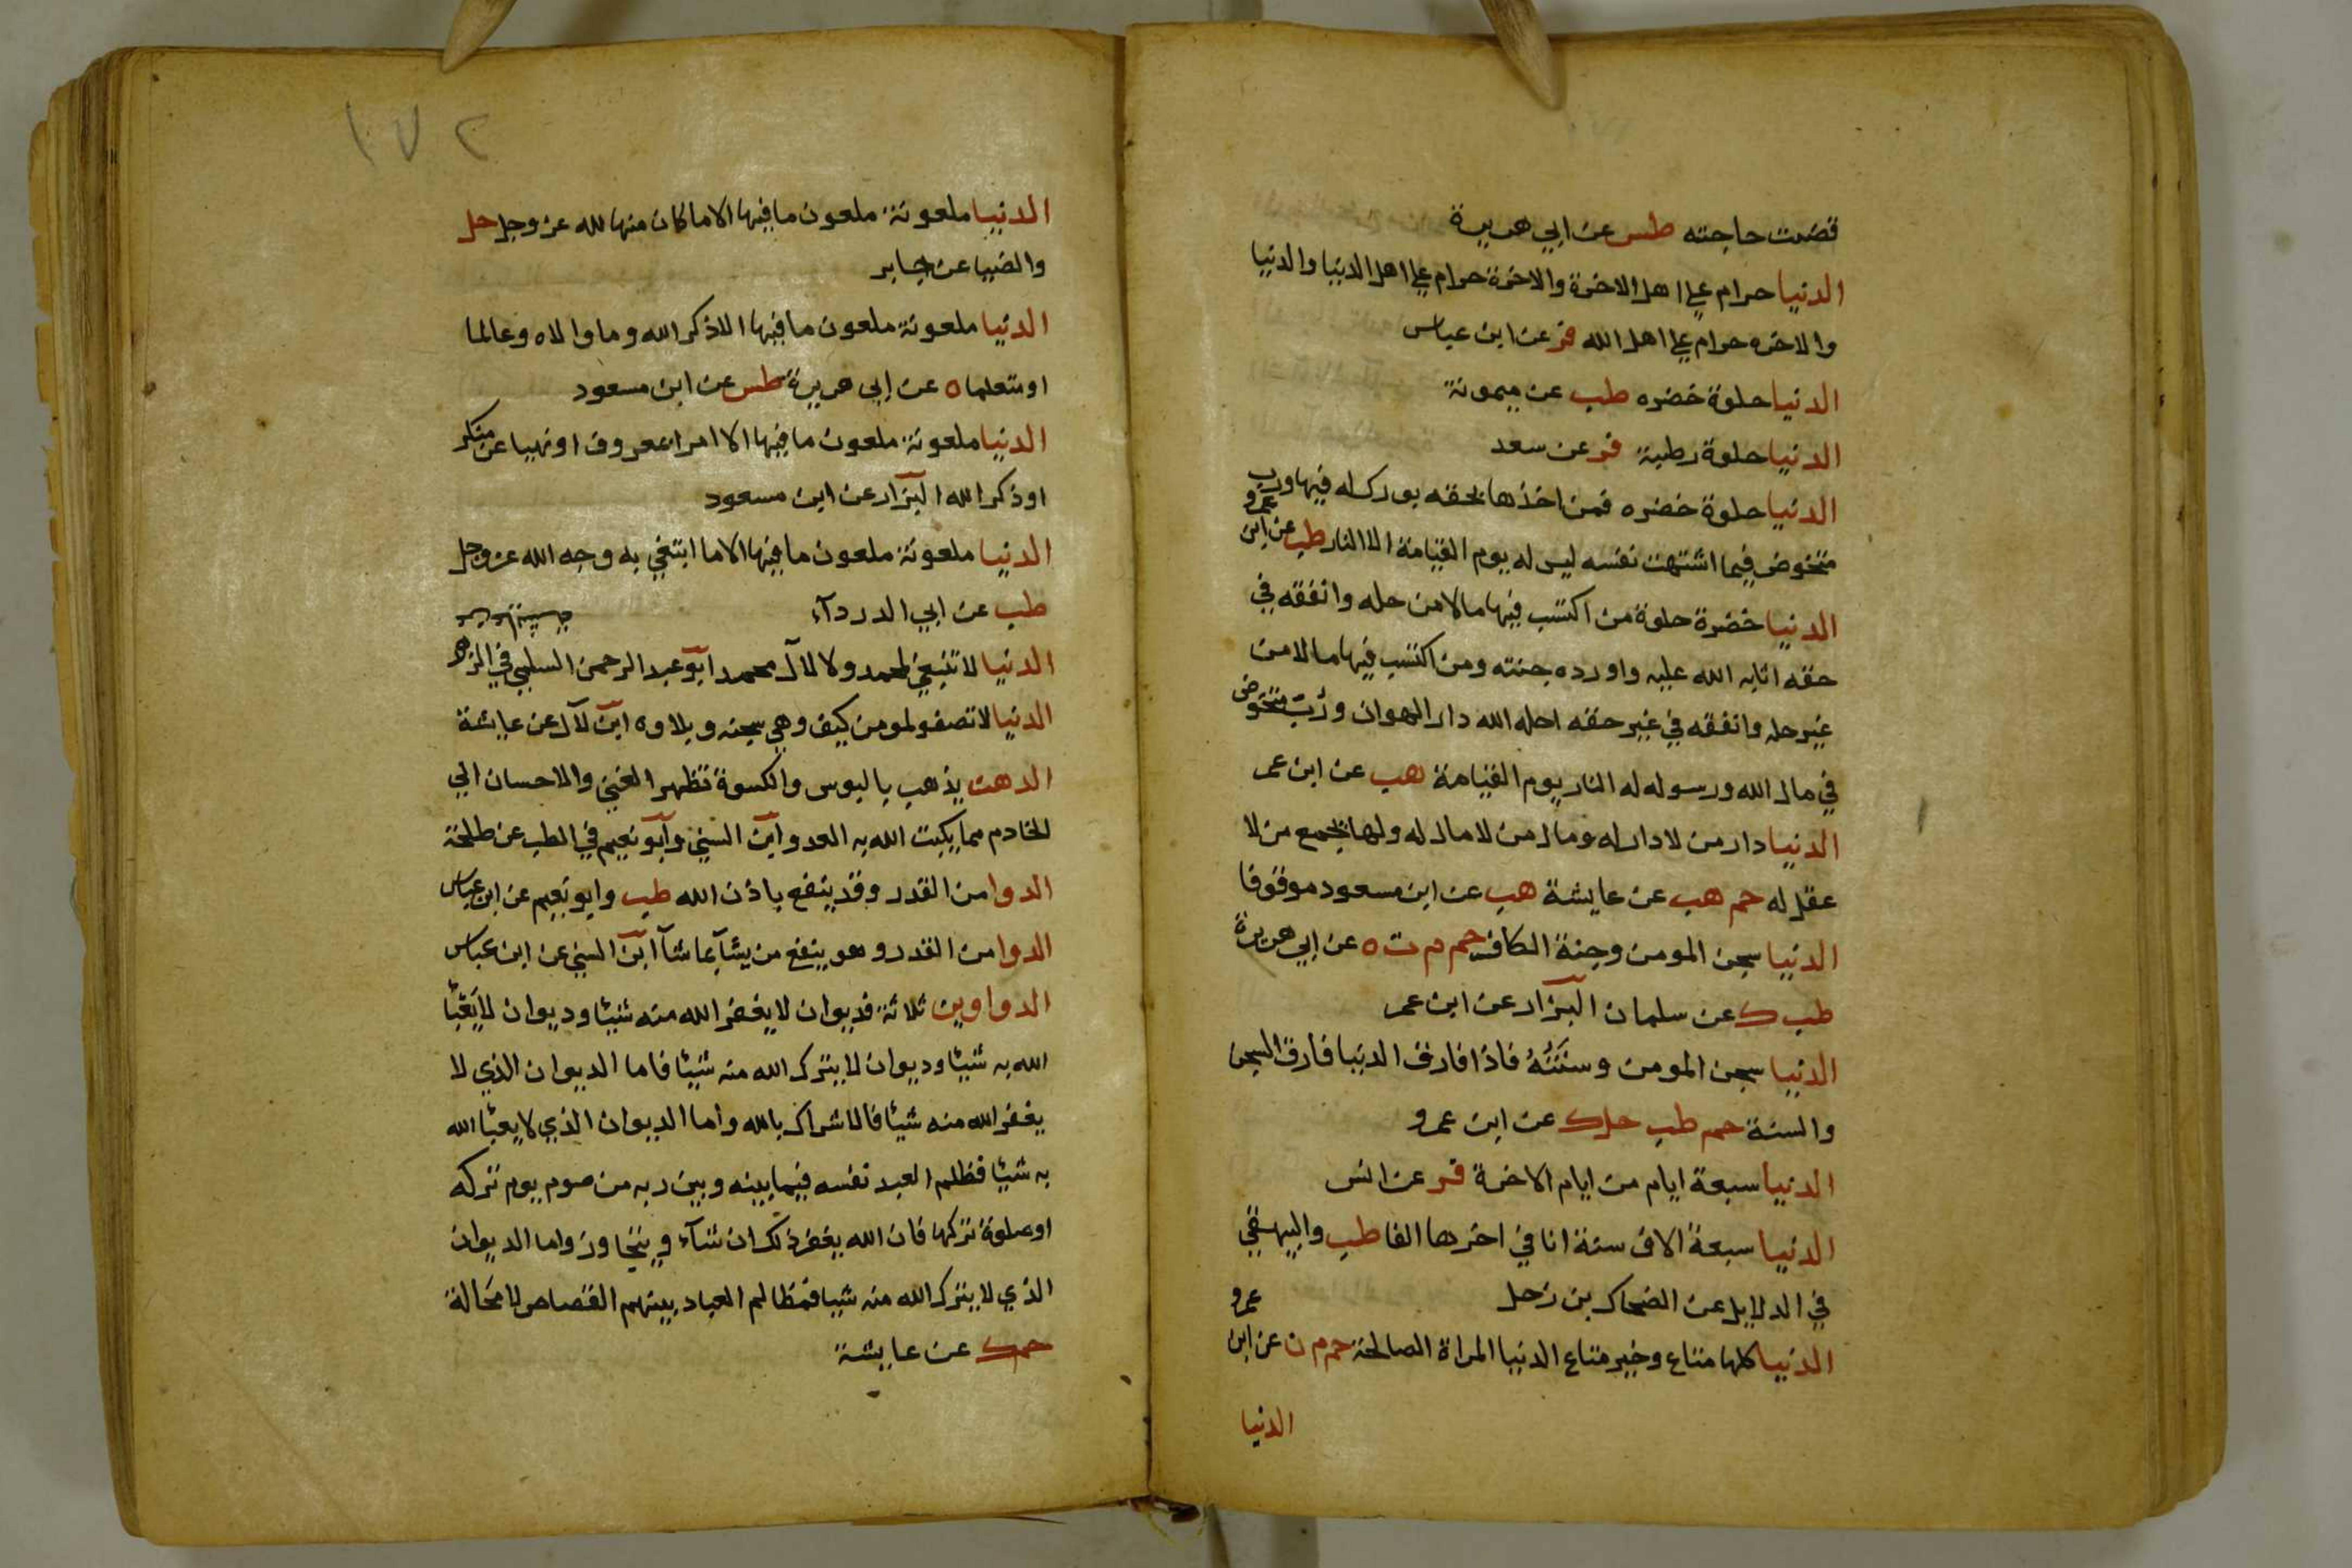 قضت حاجته طس عن ابي هريرة
الدنيا حرام على اهل الاخرة والاخرة حرام على اهل الدنيا والدنيا
والاخره حرام على اهل الله فر عن ابن عباس
الدنيا حلوة خضره طب عن ميمونة
الدنيا حلوة رطبة فر عن سعد
الدنيا حلوة خضره فمن اخذها بحقه بورك له فيها ورب
متخوض فيما اشتهت نفسه ليس له يوم القيامة الا النار طب عن ابن عمرو
الدنيا خضرة حلوة من اكتسب فيها مالا من حله وانفقه في
حقه اثابه الله عليه واورده جنته ومن اكتسب فيها مالا من
غير حله وانفقه في غير حقه احله الله دار الهوان ورُبّ متخوض
في مال الله ورسوله له النار يوم القيامة هب عن ابن عمر
الدنيا دار من لا دار له ومال من لا مال له ولها يجمع من لا
عقل له حم هب عن عايشة هب عن ابن مسعود موقوفا
الدنيا سجن المومن وجنة الكافر حم م ت ه عن ابي هريرة
طب ك عن سلمان البزار عن ابن عمر
الدنيا سجن المومن وسَنَتُهُ فاذا فارق الدنيا فارق السجن
والسنة حم طب حل ك عن ابن عمرو
الدنيا سبعة ايام من ايام الاخرة فر عن انس
الدنيا سبعة الاف سنة انا في اخرها الفا طب والبيهقي
في الدلايل عن الضحاك بن زحل
الدنيا كلها متاع وخير متاع الدنيا المراة الصالحة حم م ن عن ابن عمرو
الدنيا
١٧٢
الدنيا ملعونة ملعون ما فيها الا ما كان منها لله عز وجل حل
والضيا عن جابر
الدنيا ملعونة ملعون ما فيها الا ذكر الله وما والاه وعالما
او متعلما ه عن ابي هريرة طس عن ابن مسعود
الدنيا ملعونة ملعون ما فيها الا امرا بمعروف او نهيا عن منكر
او ذكر الله البزار عن ابن مسعود
الدنيا ملعونة ملعون ما فيها الا ما ابتغي به وجه الله عز وجل
طب عن ابي الدردآء
الدنيا لا تنبغي لمحمد ولا لال محمد ابو عبد الرحمن السلمي في الزهد
الدنيا لا تصفو لمومن كيف وهي سجنه وبلاوه ابن لآل عن عايشة
الدهن يذهب بالبوس والكسوة تظهر الغنى والاحسان الى
الخادم مما يكبت الله به العدو ابن السني وابو نعيم في الطب عن طلحة
الدوا من القدر وقد ينفع باذن الله طب وابو نعيم عن ابن عباس
الدوا من القدر وهو ينفع من يشآء بما شآ ابن السني عن ابن عباس
الدواوين ثلاثة فديوان لا يغفر الله منه شيئا وديوان لا يَعْبَأ
الله به شيئا وديوان لا يترك الله منه شيئا فاما الديوان الذي لا
يغفر الله منه شيئا فالاشراك بالله واما الديوان الذي لا يعبأ الله
به شيئا فظلم العبد نفسه فيما بينه وبين ربه من صوم يوم تركه
او صلوة تركها فان الله يغفر ذلك ان شآء ويتجاوز واما الديوان
الذي لا يترك الله منه شيا فمظالم العباد بينهم القصاص لا مَحَالة
حم ك عن عايشة